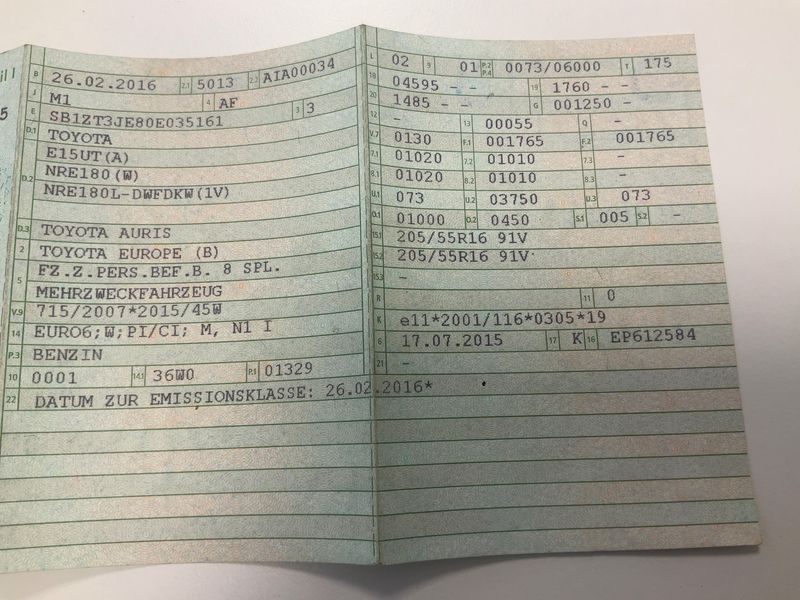 il I
5
B 26.02.2016 2.1 5013 2.2 AIA00034
J M1 4 AF
E SB1ZT3JE80E035161 3 3
D.1 TOYOTA
E15UT(A)
D.2 NRE180(W)
NRE180L-DWFDKW(1V)
D.3 TOYOTA AURIS
2 TOYOTA EUROPE (B)
5 FZ.Z.PERS.BEF.B. 8 SPL.
MEHRZWECKFAHRZEUG
V.9 715/2007*2015/45W
14 EURO6;W;PI/CI; M, N1 I
P.3 BENZIN
10 0001 14.1 36W0 P.1 01329
22 DATUM ZUR EMISSIONSKLASSE: 26.02.2016*
L 02 9 01 P.2 P.4 0073/06000 T 175
18 04595 - - 19 1760 - -
20 1485 - - G 001250 -
12 - 13 00055 Q -
V.7 0130 F.1 001765 F.2 001765
7.1 01020 7.2 01010 7.3 -
8.1 01020 8.2 01010 8.3 -
U.1 073 U.2 03750 U.3 073
O.1 01000 O.2 0450 S.1 005 S.2 -
15.1 205/55R16 91V
15.2 205/55R16 91V
15.3 -
R 11 0
K e11*2001/116*0305*19
6 17.07.2015 17 K 16 EP612584
21 -